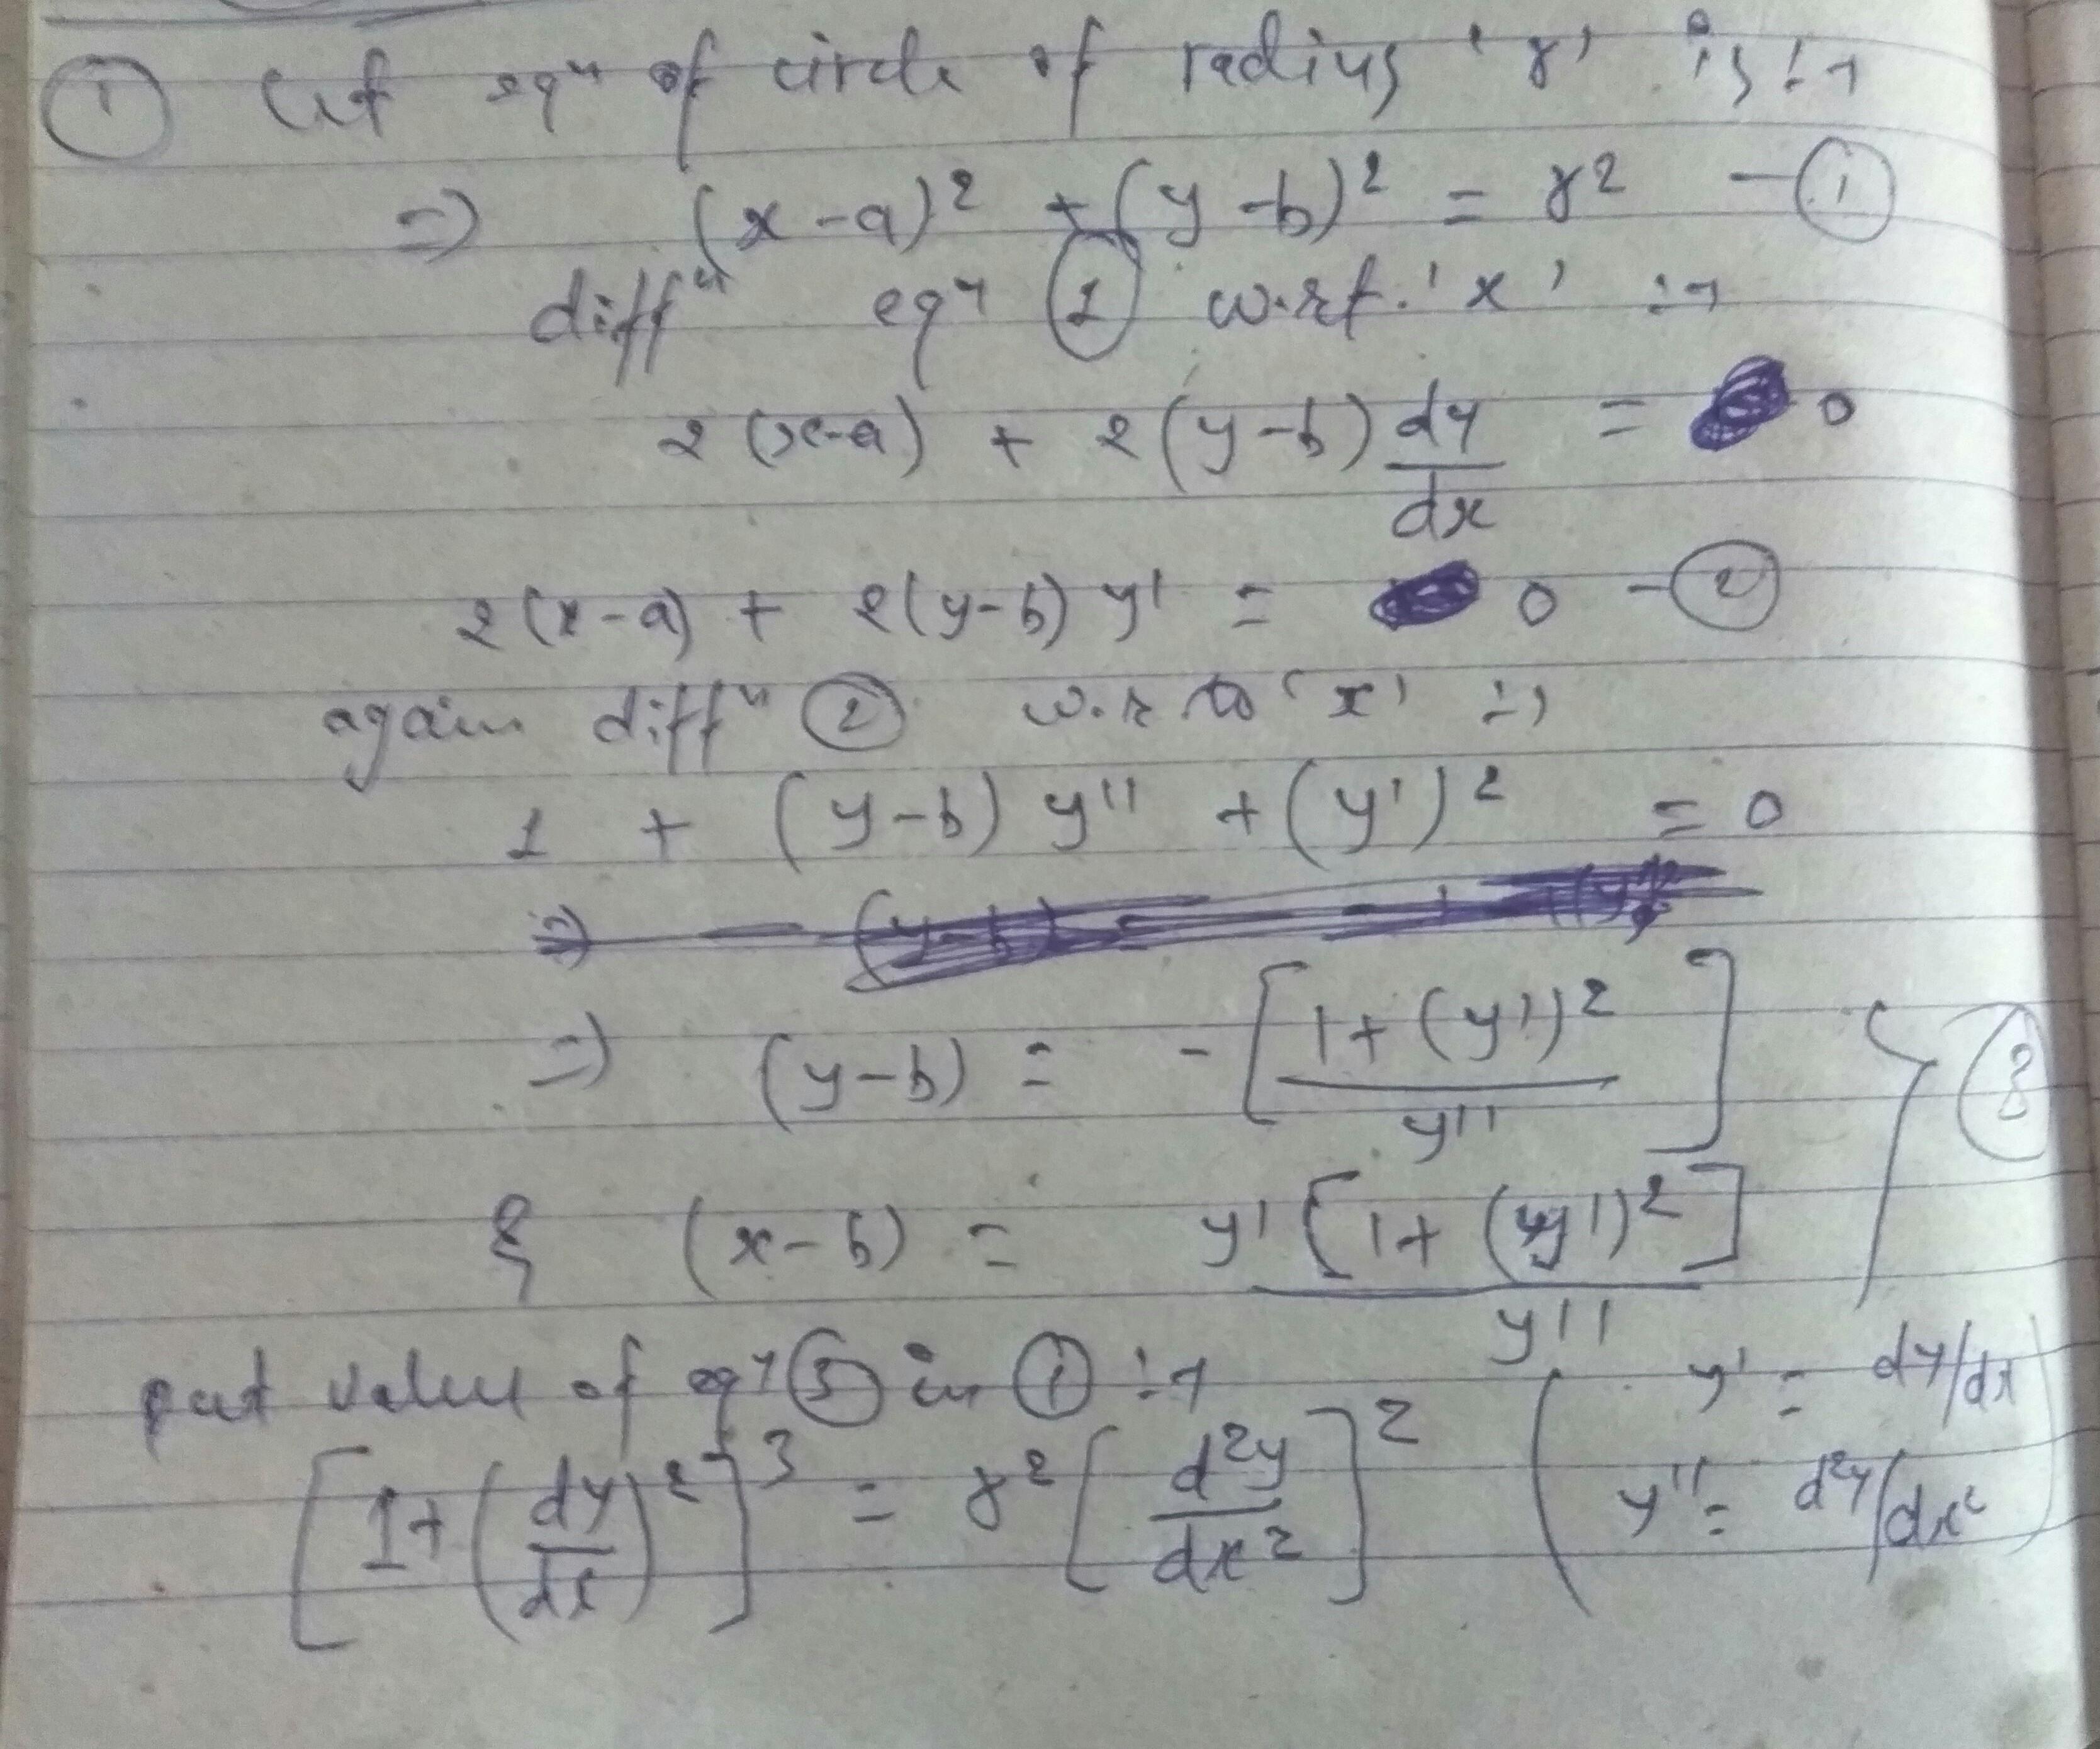 ① Let eqⁿ of circle of radius 'r' is :→
⇒ (x-a)² + (y-b)² = r² —①
diffⁿ eqⁿ ① w.r.t. 'x' :→
2(x-a) + 2(y-b) dy/dx = 0
2(x-a) + 2(y-b) y' = 0 —②
again diffⁿ ② w.r.to 'x' :→
1 + (y-b) y'' + (y')² = 0
⇒ (y-b) = -[1+(y')²/y'']
& (x-b) = y'[1+(y')²]/y'' } ③
put value of eqⁿ ③ in ① :→
[1+(dy/dx)²]³ = r² [d²y/dx²]²
(y' = dy/dx)
y'' = d²y/dx²